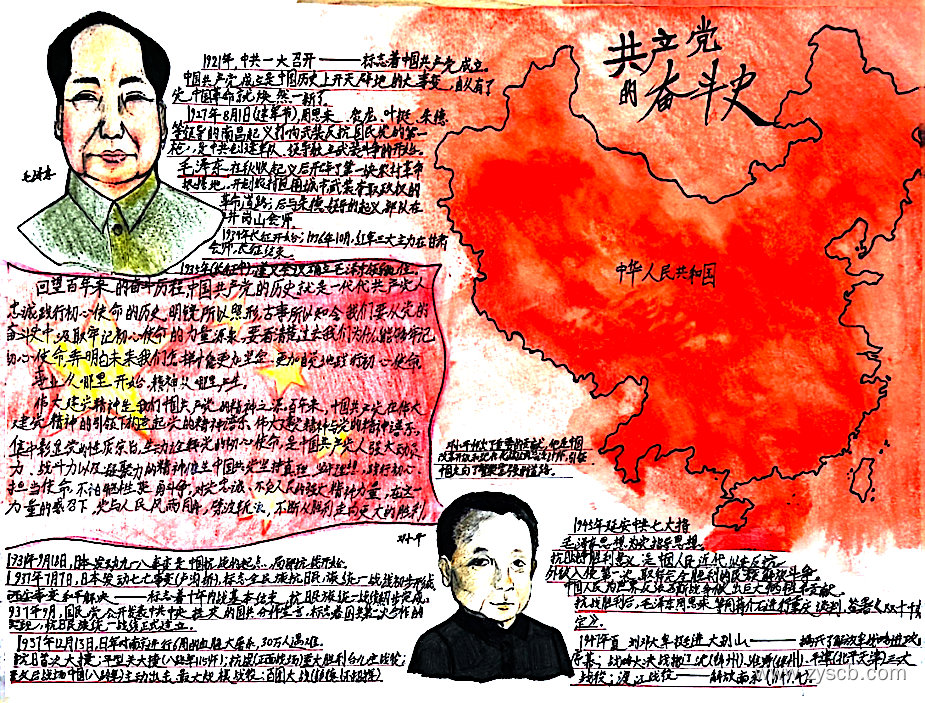 共产党
的奋斗史
1921年,中共一大召开———标志着中国共产党成立。
中国共产党成立是中国历史上开天辟地的大事变,自从有了
党,中国革命就焕然一新了。
1927年8月1日(建军节)周恩来、贺龙、叶挺、朱德
等领导的南昌起义打响武装反抗国民党的第一
枪,是中共创建军队、领导独立武装斗争的开始。
毛泽东在秋收起义后开辟了第一块农村革命
根据地,开创农村包围城市武装夺取政权的
革命道路;后与朱德领导的起义部队在
井冈山会师
1934年长征开始;1936年10月,红军三大主力在甘肃
会师,长征结束。
1935年(长征中)遵义会议确立毛泽东领导地位。
毛泽东
回望百年来的奋斗历程,中国共产党的历史就是一代代共产党人
忠诚践行初心使命的历史。明镜所以照形,古事所以知今,我们要从党的
奋斗史中汲取牢记初心使命的力量源泉。要看清楚过去我们为什么能够牢记
初心使命,弄明白未来我们怎样才能更加坚牢、更加自觉地践行初心使命
事业从哪里开始,精神从哪里产生。
伟大建党精神是我们中国共产党的精神之源。百年来,中国共产党在伟大
建党精神的引领下构建起党的精神谱系,伟大建党精神与党的精神谱系
集中彰显党的性质宗旨,生动诠释党的初心使命,是中国共产党人强大动员
力、战斗力以及凝聚力的精神
担当使命,不怕牺牲英勇斗争,对党忠诚、不负人民的强大精神力量,在这一
力量的感召下,党与人民风雨同舟,不断从胜利走向更大的胜利
中华人民共和国
邓小平
1931年9月18日,日本发动九一八事变是中国抗战的起点,局部抗战开始。
1937年7月7日,日本发动七七事变(卢沟桥),标志全民族抗日民族统一战线初步形成
西安事变和平解决———标志着十年内战基本结束,抗日民族统一战线初步形成。
1937年9月,国民党公开发表中共中央提交的国共合作宣言,标志着国共第二次合作的
实现,抗日民族统一战线正式建立。
1937年12月13日,日军对南京进行6周的血腥大屠杀,30万人遇难。
抗日首次大捷:平型关大捷(八路军115师);抗战(正面战场)重大胜利台儿庄战役;
敌后战场中国(八路军)主动出击,最大规模战役:百团大战
1945年延安中共七大将
毛泽东思想为定指导思想。
抗日战争胜利意义:是中国人民近代以来反抗
外敌入侵第一次取得完全胜利的民族解放斗争。
中国人民为世界反法西斯战争做出巨大牺牲和贡献。
抗战胜利后,毛泽东周恩来等同蒋介石进行重庆谈判,签署《双十协
定》。
1947年夏,刘邓大军挺进大别山———揭开了解放军战略进攻
序幕;战略大决战辽沈(锦州)、淮海(徐州)、平津(北平天津)三大
战役;渡江战役———解放南京(1949.4)。
www.zyscb.com